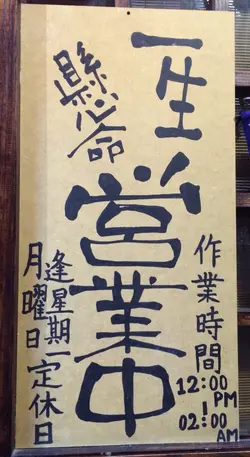 一生
懸命
営業中
作業時間
12:00
PM
|
02:00
AM
逢星期一定休日
月曜日